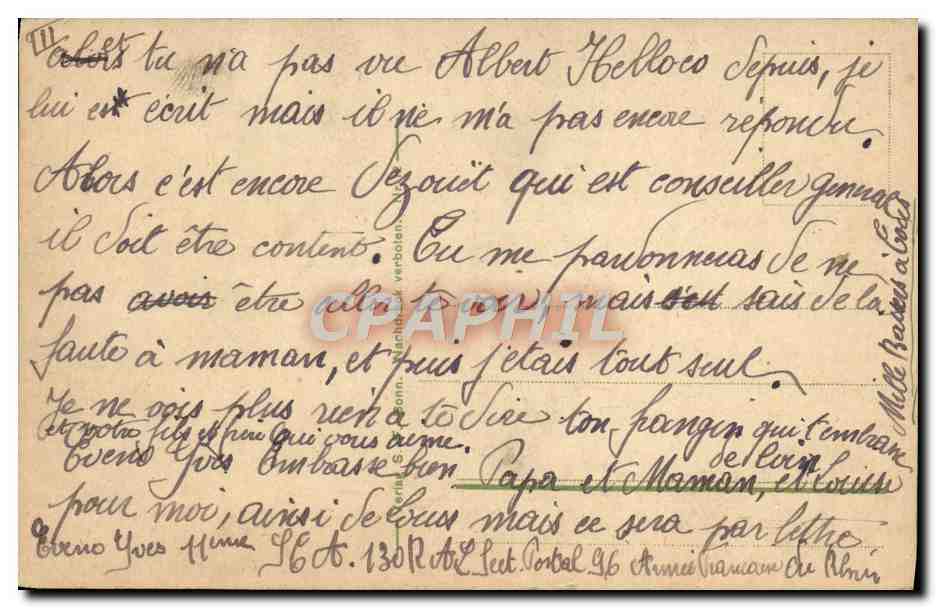 III
alors tu n'a pas vu Albert Helloco depuis, je
lui est écrit mais il ne m'a pas encore répondu.
Alors c'est encore Dezouët qui est conseiller general
il doit être content. Tu me pardonneras de ne
pas avois être aller te voir, mais c'est sais de la
faute à maman, et puis j'etais tout seul.
Je ne vois plus rien a te dire ton frangin qui t'embrasse
et votre fils et qui vous aime. de loin
Eveno Yves Embrasse bien Papa et Maman, et Louise
pour moi, ainsi de tous mais ce sera par lettre
Eveno Yves 11eme S6A. 130 R A L Sect. Postal 96 Armée Francaise du Rhin
Mille Baisers à tous
CPAPHIL
Nachdruck verboten.